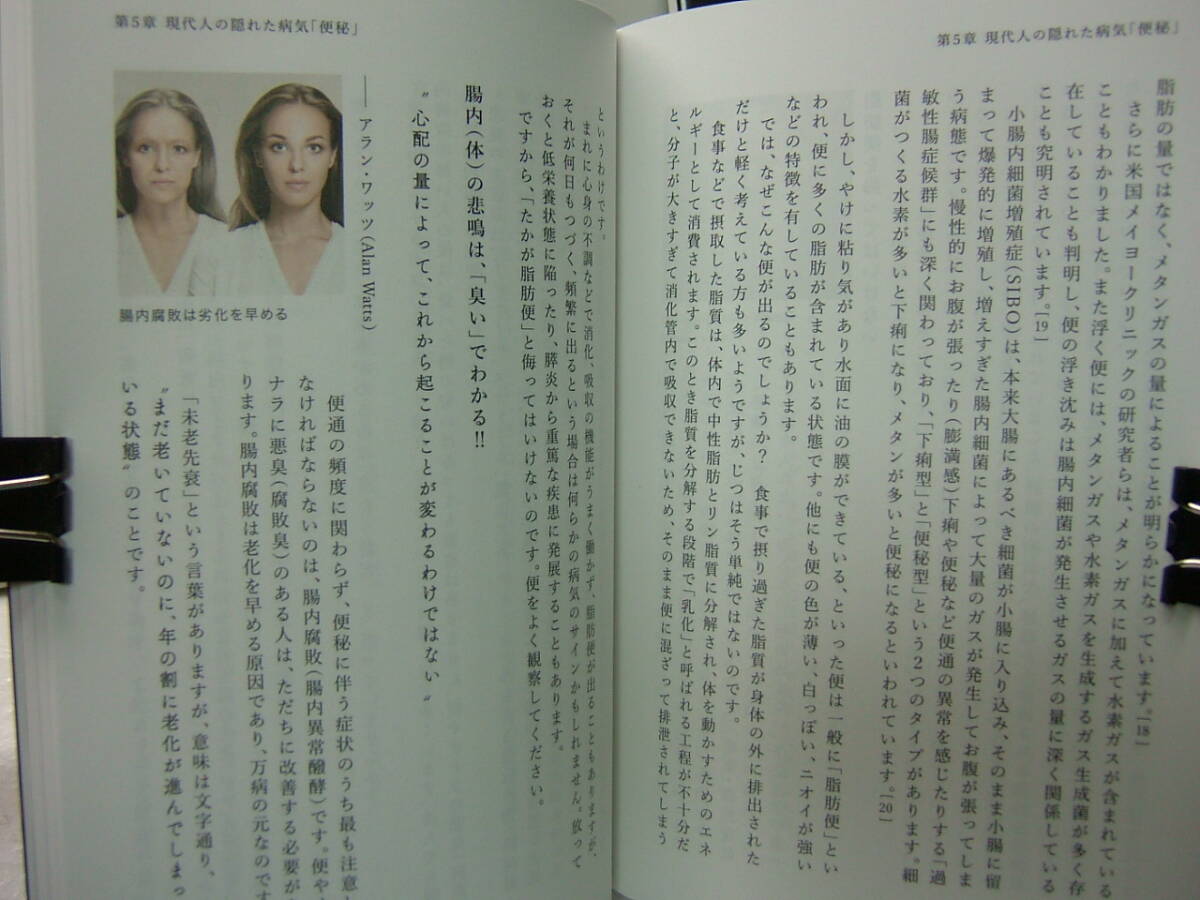 第5章 現代人の隠れた病気「便秘」
脂肪の量ではなく、メタンガスの量によることが明らかになっています。[18]
さらに米国メイヨークリニックの研究者らは、メタンガスに加えて水素ガスが含まれている
こともわかりました。また浮く便には、メタンガスや水素ガスを生成するガス生成菌が多く存
在していることも判明し、便の浮き沈みは腸内細菌が発生させるガスの量に深く関係している
ことも究明されています。[19]
小腸内細菌増殖症(SIBO)は、本来大腸にあるべき細菌が小腸に入り込み、そのまま小腸に留
まって爆発的に増殖し、増えすぎた腸内細菌によって大量のガスが発生してお腹が張ってしま
う病態です。慢性的にお腹が張ったり(膨満感)下痢や便秘など便通の異常を感じたりする「過
敏性腸症候群」にも深く関わっており、「下痢型」と「便秘型」という2つのタイプがあります。細
菌がつくる水素が多いと下痢になり、メタンが多いと便秘になるといわれています。[20]
しかし、やけに粘り気があり水面に油の膜ができている、といった便は一般に「脂肪便」とい
われ、便に多くの脂肪が含まれている状態です。他にも便の色が薄い、白っぽい、ニオイが強い
などの特徴を有していることもあります。
では、なぜこんな便が出るのでしょうか? 食事で摂り過ぎた脂質が身体の外に排出された
だけと軽く考えている方も多いようですが、じつはそう単純ではないのです。
食事などで摂取した脂質は、体内で中性脂肪とリン脂質に分解され、体を動かすためのエネ
ルギーとして消費されます。このとき脂質を分解する段階で「乳化」と呼ばれる工程が不十分だ
と、分子が大きすぎて消化管内で吸収できないため、そのまま便に混ざって排泄されてしまう
第5章 現代人の隠れた病気「便秘」
というわけです。
まれに心身の不調などで消化、吸収の機能がうまく働かず、脂肪便が出ることもありますが、
それが何日もつづく、頻繁に出るという場合は何らかの病気のサインかもしれません。放って
おくと低栄養状態に陥ったり、膵炎から重篤な疾患に発展することもあります。
ですから、「たかが脂肪便」と侮ってはいけないのです。便をよく観察してください。
腸内(体)の悲鳴は、「臭い」でわかる!!
〝心配の量によって、これから起こることが変わるわけではない〟
―― アラン・ワッツ(Alan Watts)
腸内腐敗は劣化を早める
便通の頻度に関わらず、便秘に伴う症状のうち最も注意
なければならないのは、腸内腐敗(腸内異常醗酵)です。便や
ナラに悪臭(腐敗臭)のある人は、ただちに改善する必要が
ります。腸内腐敗は老化を早める原因であり、万病の元なのです
「未老先衰」という言葉がありますが、意味は文字通り、
〝まだ老いていないのに、年の割に老化が進んでしまっ
いる状態〟のことです。